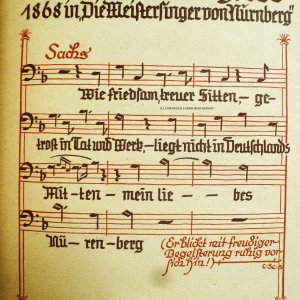 1868 in „Die Meistersinger von Nürnberg"
Sachs
Wie friedsam treuer Sitten, – ge-
trost in Tat und Werk, – liegt nicht in Deutschlands
Mit – ten – mein lie – bes
Nü – ren – berg
(Er blickt mit freudiger
Begeisterung ruhig vor
sich hin!)